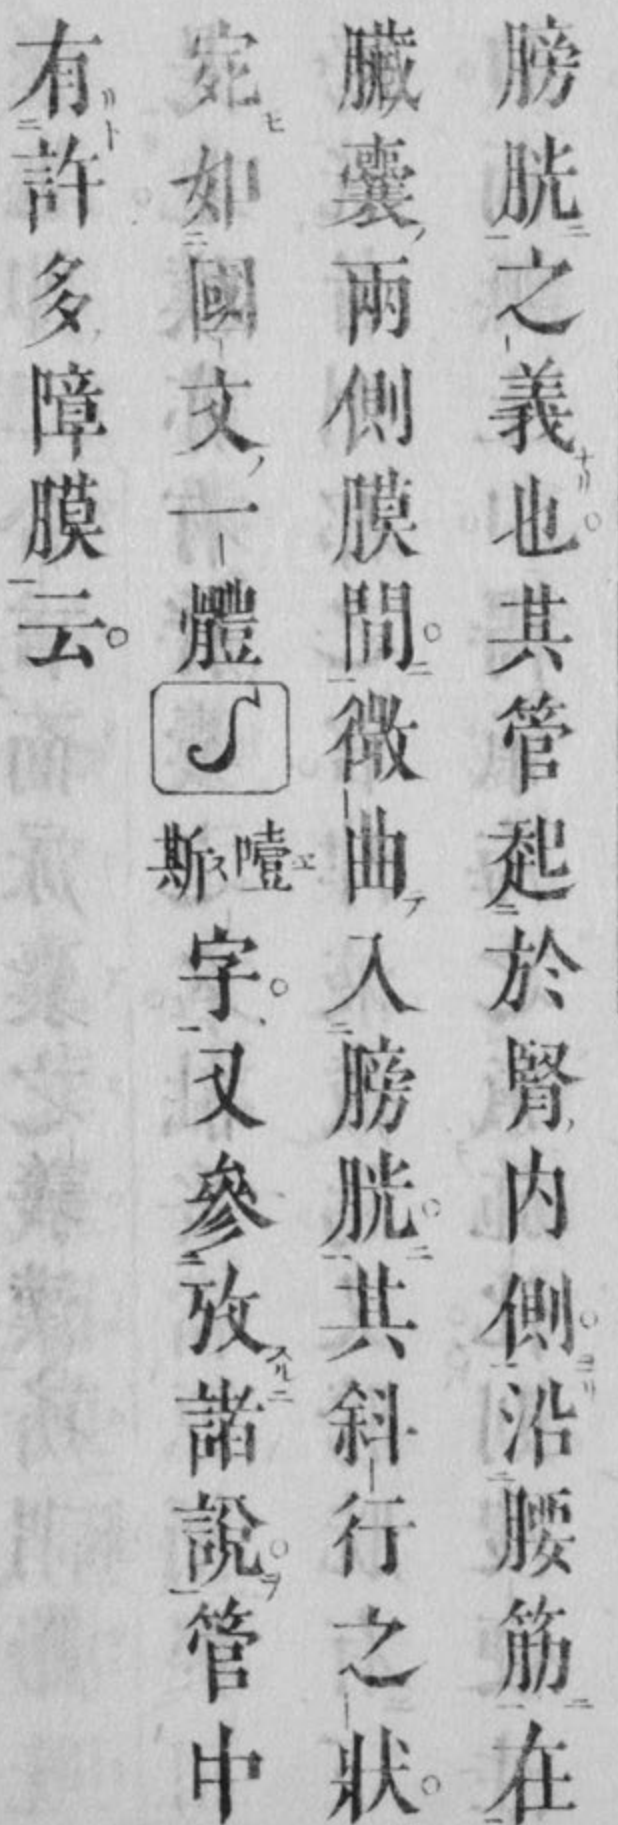 膀胱之義也。其管起於腎內側。沿腰筋在
臟囊兩側膜間。微曲入膀胱。其斜行之狀。
宛如國文一體ʃ噎斯字。又參攷諸說。管中
有許多障膜云。